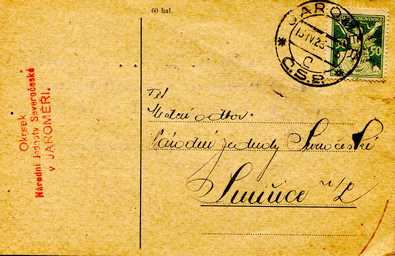 60 hal.
JAROMĚŘ
Č.S.P.
50
Okrsek
Národní Jednoty Severočeské
v JAROMĚŘI.
Místní odbor
Národní jednoty Severočeské
Smiřice n/L